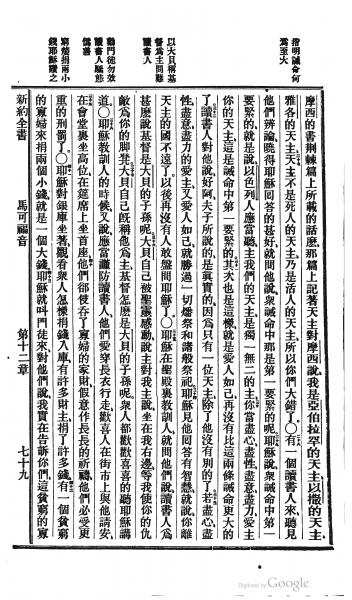 指明誡命何
爲至大
以大貝稱基
督爲主問難
讀書人
勸門徒勿效
讀書人驕態
僞善
窮嫠捐兩小
錢耶穌讚之
摩西的書荆棘篇上所載的話麽那篇上記著天主對摩西說我是亞伯拉罕的天主以撒的天主
雅各的天主天主不是死人的天主乃是活人的天主所以你們大錯了〇有一個讀書人來聽見
他們辨論曉得耶穌回答的甚好就問他說衆誡命中那是第一要緊的呢耶穌說衆誡命中第一
要緊的就是說以色列人應當聽主我們的天主是獨一無二的主你當盡心盡性盡意盡力愛主
你的天主這是誡命中第一要緊的其次也是這樣就是愛人如己再沒有比這兩條誡命更大的
了讀書人對他說好阿夫子所說的是眞實的因爲只有一位天主除了他沒有別的了若盡心盡
性盡意盡力的愛主又愛人如己就勝過一切燔祭和諸般祭祀耶穌見他回答有智慧就說你離
天主的國不遠了以後再沒有人敢盤問耶穌了〇耶穌在聖殿裏敎訓人就問他們說讀書人爲
甚麽說基督是大貝的子孫呢大貝自己被聖靈感動說主對我主說坐在我右邊等我使你的仇
敵爲你的脚凳大貝自己旣稱他爲主基督怎麽是大貝的子孫呢衆人都歡歡喜喜的聽耶穌講
道〇耶穌敎訓人的時候又說應當謹防讀書人他們愛穿長衣行走歡喜人在街市上與他請安
在會堂裏坐高位在筵席上坐首座他們卻侵呑了寡婦的家財假意作長長的祈禱他們必受更
重的刑罰了〇耶穌對銀庫坐著觀看衆人怎樣捐錢入庫有許多財主捐了許多錢有一個貧窮
的寡婦來捐兩個小錢就是一個大錢耶穌就叫門徒來對他們說我實在告訴你們這貧窮的寡
新約全書 馬可福音 第十二章 七十九
Digitized by Google